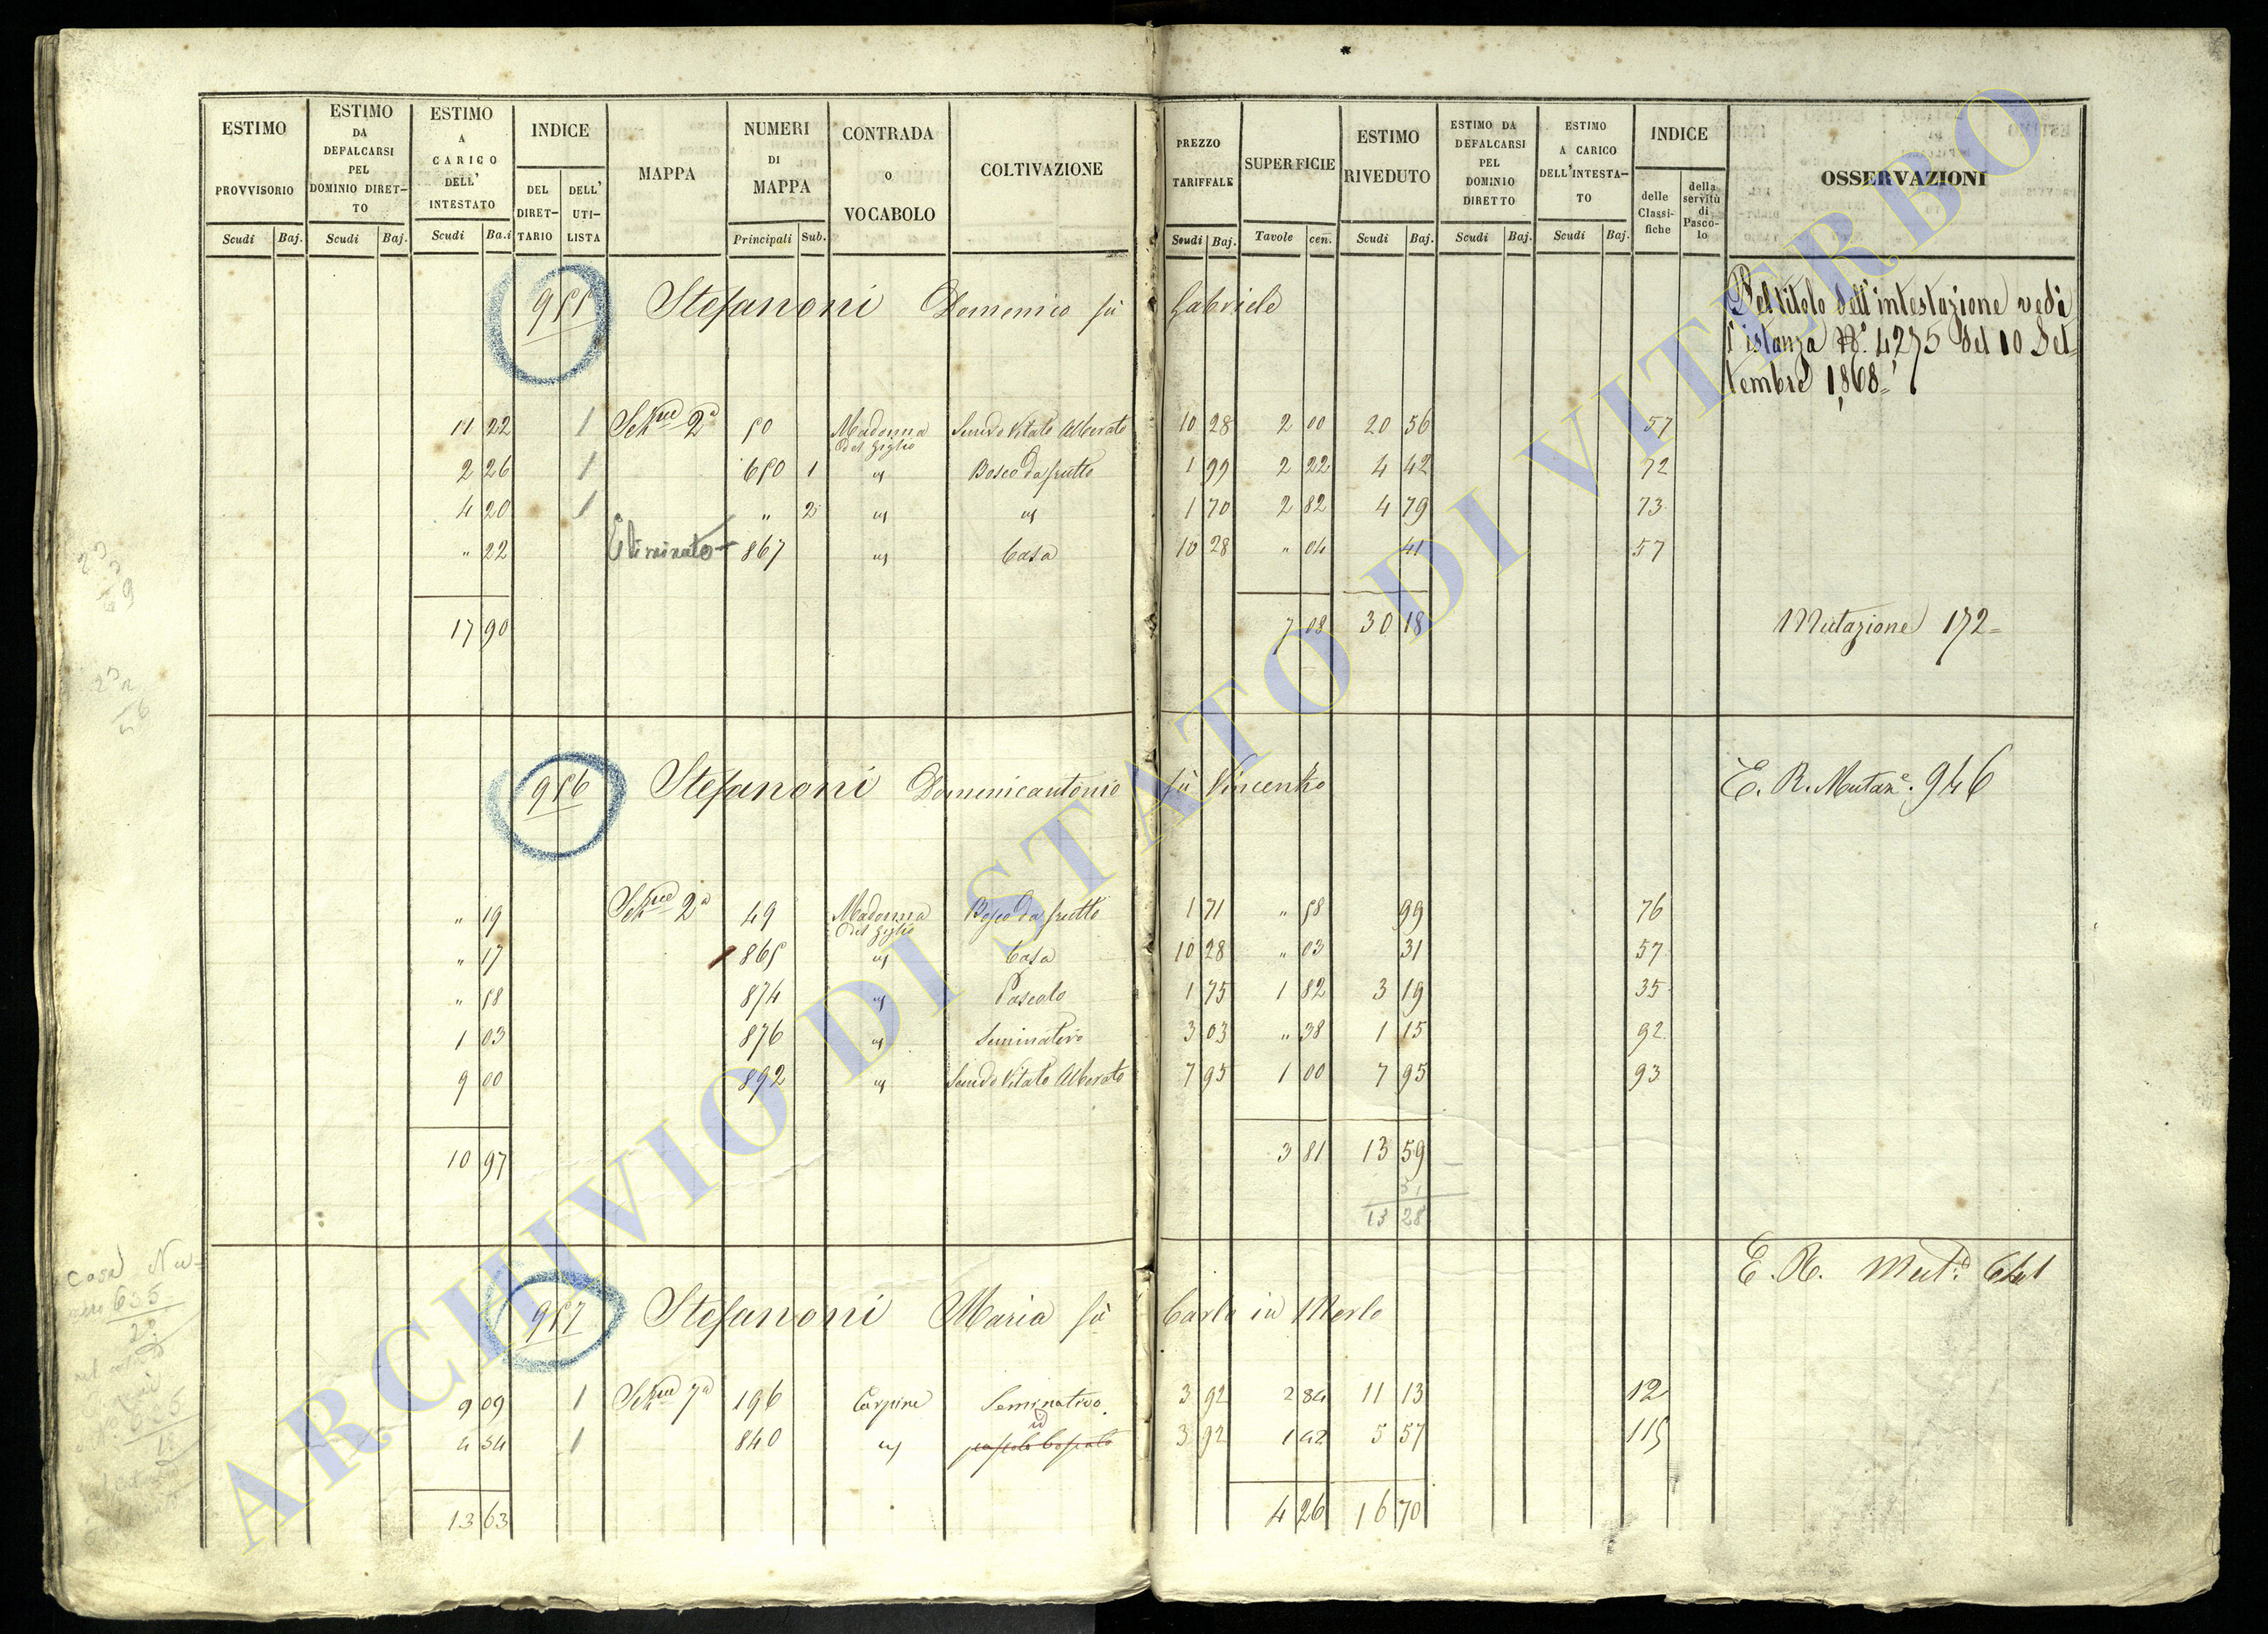 ESTIMO PROVVISORIO
ESTIMO DA DEFALCARSI PEL DOMINIO DIRET-TO
ESTIMO A CARICO DELL' INTESTATO
INDICE
DEL DIRET-TARIO
DELL' UTI-LISTA
MAPPA
NUMERI DI MAPPA
CONTRADA o VOCABOLO
COLTIVAZIONE
PREZZO TARIFFALE
SUPERFICIE
ESTIMO RIVEDUTO
ESTIMO DA DEFALCARSI PEL DOMINIO DIRETTO
ESTIMO A CARICO DELL'INTESTA-TO
INDICE
delle Classi-fiche
della servitù di Pasco-lo
OSSERVAZIONI
Scudi Baj. Scudi Baj. Scudi Ba.i Principali Sub. Scudi Baj. Tavole cen. Scudi Baj. Scudi Baj. Scudi Baj.
955 Stefanoni Domenico fù Gabriele
Del titolo dell'intestazione vedi
l'istanza N°. 4275 del 10 Set=
tembre 1868=
11 22 1 Sez.ne 2a 50 Madonna del Giglio Semvo Vitato Alberato 10 28 2 00 20 56 57
2 26 1 650 1 " Bosco da frutto 1 99 2 22 4 42 72
4 20 1 " 2 " " 1 70 2 82 4 79 73
" 22 Eliminato 867 " Casa 10 28 " 04 41 57
17 90 7 08 30 18 Mutazione 172=
956 Stefanoni Domenicantonio fù Vincenzo E. R. Mutaz.e 946
" 19 Sez.ne 2a 49 Madonna del Giglio Bosco da frutto 1 71 " 58 99 76
" 17 865 " Casa 10 28 " 03 31 57
" 58 874 " Pascolo 1 75 1 82 3 19 35
1 03 876 " Seminativo 3 03 " 38 1 15 92
9 00 892 " Semvo Vitato Alberato 7 95 1 00 7 95 93
10 97 3 81 13 59
31
13 28
957 Stefanoni Maria fù Carlo in Merlo E. R. Mut.
9 09 1 Sez.ne 7a 196 Carpine Seminativo 3 92 2 84 11 13 12
4 54 1 840 " id pascolo boscato 3 92 1 42 5 57 115
13 63 4 26 16 70
casa Nu=
mero 635
ARCHIVIO DI STATO DI VITERBO